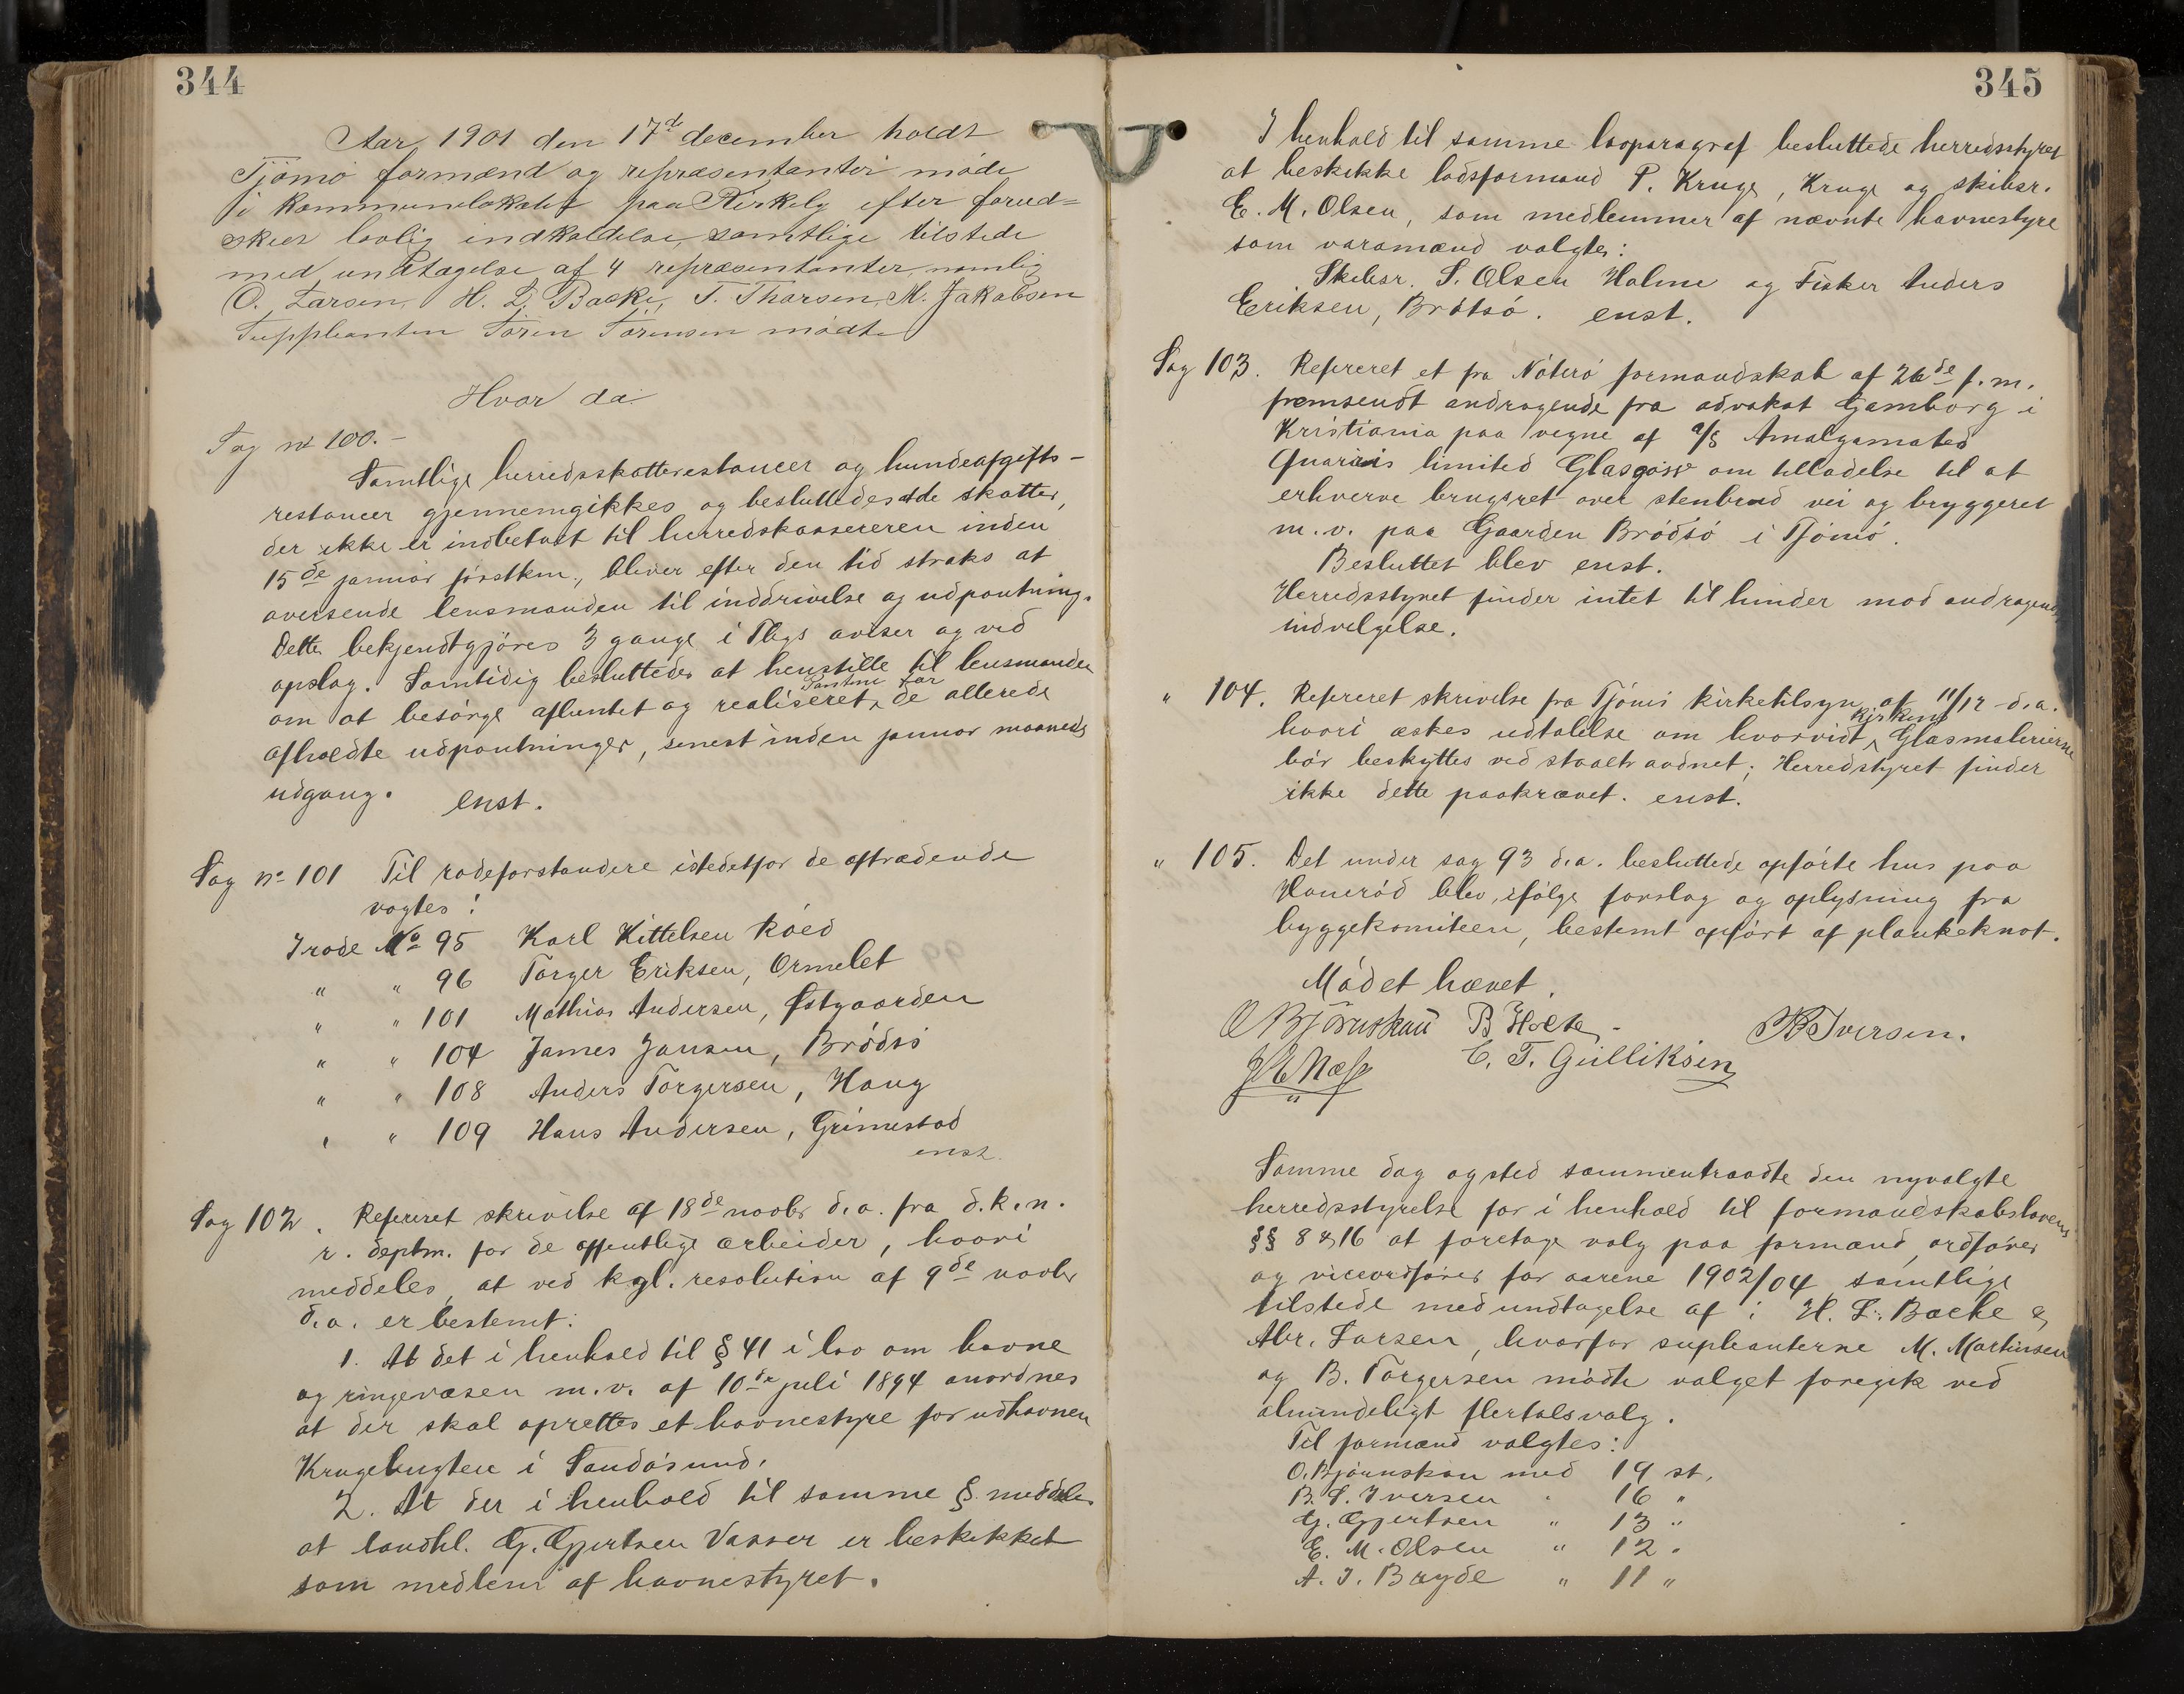 344
Aar 1901 den 17d december holdt
Tjømø formænd og repræsentanter møde
i kommunelokalet paa Kirkely efter forud=
skeet lovlig indkaldelse, samtlige tilstede
med undtagelse af 4 repræsentanter, namlig
O. Larsen, H. L. Backe, T. Thorsen, M. Jakobsen
Suppleanten Søren Sørensen mødte
Hvor da:
Sag no 100.-
Samtlige herredsskatterestancer og hundeafgifts-
restancer gjennemgikkes og besluttedes at de skatter,
der ikke er indbetalt til herredskassereren inden
15de januar førstkm., bliver efter den tid straks at
oversende lensmanden til inddrivelse og udpantning.
Dette bekjendtgjøres 3 gange i Tbgs aviser og ved
opslag. Samtidig besluttedes at henstille til lensmanden
om at besørge afhentet og realiseret Pantene for de allerede
afholdte udpantninger, senest inden januar maaneds
udgang. enst.
Sag no 101 Til rodeforstandere istedetfor de aftrædende
vagtes:
I rode No 95 Karl Kittelsen Røed
" " 96 Torger Eriksen, Ormelet
" " 101 Mathias Andersen, Østgaarden
" " 104 James Jansen, Brødsø
" " 108 Anders Torgersen, Haug
" " 109 Hans Andersen, Grimestad
enst.
Sag 102. Refereret skrivelse af 18de novbr d.a. fra d.k.n.
r. deptm. for de offentlige arbeider, hvori
meddeles, at ved kgl. resolution af 9de novbr
d.a. er bestemt:
1. At det i henhold til § 41 i lov om havne
og ringevæsen m.v. af 10de juli 1894 anordnes
at der skal oprettes et havnestyre for udhavnen
Krugebugten i Sandøsund.
2. At der i henhold til samme §. meddeles
at landhl. G. Gjertsen Vasser er beskikket
som medlem af havnestyret.
345
I henhold til samme lovparagraf besluttede herredsstyret
at beskikke lodsformand P. Kruge, Kruge og skibsr.
E. M. Olsen, som medlemmer af nævnte havnestyre
som varamænd valgtes:
Skibsr. S. Olsen Holme og Fisker Anders
Eriksen, Brøtsø. enst.
Sag 103. Refereret et fra Nøterø formandskab af 26de f.m.
fremsendt andragende fra advokat Gamborg i
Kristiania paa vegne af a/s Amalgamated
Quarries limited Glasgow om tilladelse til at
erhverve brugsret over stenbrud vei og bryggeret
m.v. paa Gaarden Brødsø i Tjømø.
Besluttet blev enst.
Herredsstyret finder intet til hinder mod andragendes
indvelgelse.
" 104. Refereret skrivelse fra Tjømø kirketilsyn af 11/12 d.a.
hvori æskes udtalelse om hvorvidt kirkens Glasmalerierne
bør beskyttes ved staaltraadnet; Herredstyret finder
ikke dette paakrævet. enst.
" 105. Det under sag 93 d.a. besluttede opførte hus paa
Honerød blev, ifølge forslag og oplysning fra
byggekomiteen, bestemt opført af plankeknot.
Mødet hævet.
O Bjørnskau B Holte - B Iversen.
E. T. Gulliksen
Samme dag og sted sammentraadte den nyvalgte
herredsstyrelse for i henhold til formandskabslovens
§§ 8 & 16 at foretage valg paa formænd, ordfører
og viceordfører for aarene 1902/04 samtlige
tilstede med undtagelse af: H. L. Backe &
Abr. Larsen, hvorfor supleanterne M. Martinsen
og B. Torgersen mødte valget foregik ved
almindeligt flertalsvalg.
Til formænd valgtes:
O. Bjørnskau med 19 st.
B. L. Iversen " 16 "
G. Gjertsen " 13 "
E. M. Olsen " 12 "
A. I. Bryde " 11 "